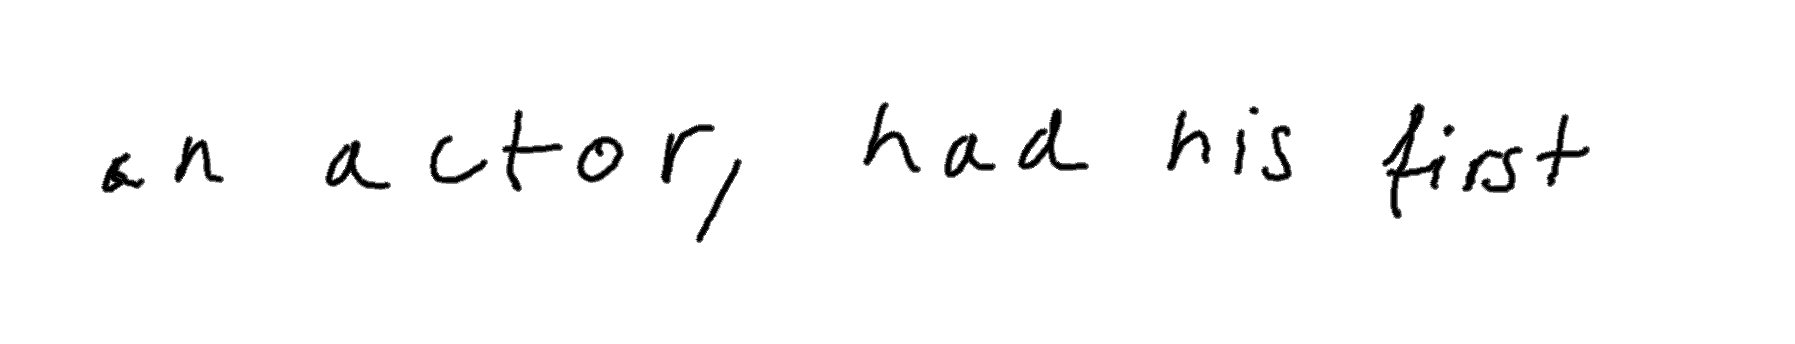 an actor, had his first